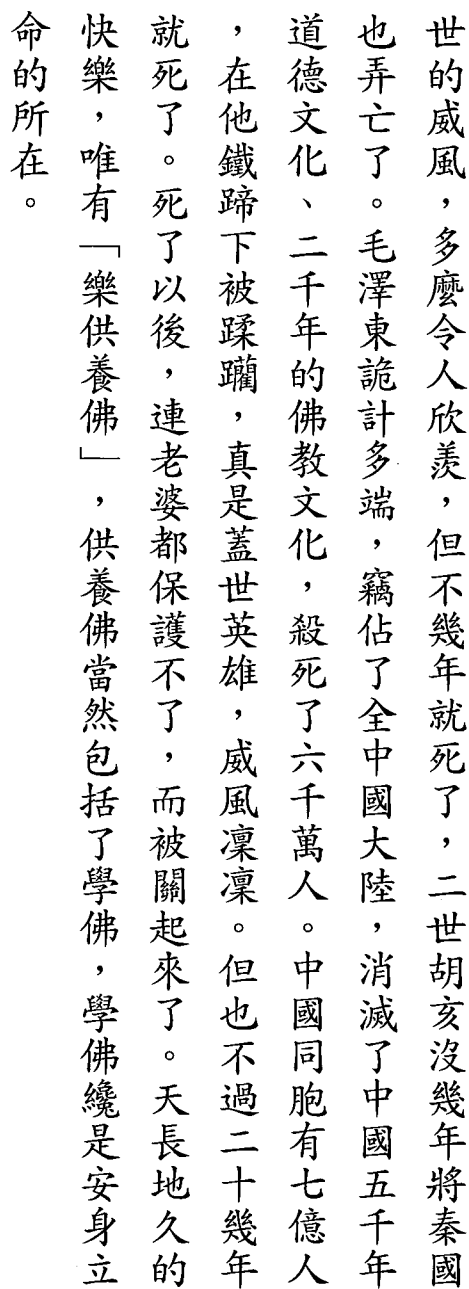 世的威風，多麼令人欣羨，但不幾年就死了，二世胡亥沒幾年將秦國
也弄亡了。毛澤東詭計多端，竊佔了全中國大陸，消滅了中國五千年
道德文化、二千年的佛教文化，殺死了六千萬人。中國同胞有七億人
，在他鐵蹄下被蹂躪，真是蓋世英雄，威風凜凜。但也不過二十幾年
就死了。死了以後，連老婆都保護不了，而被關起來了。天長地久的
快樂，唯有「樂供養佛」，供養佛當然包括了學佛，學佛纔是安身立
命的所在。